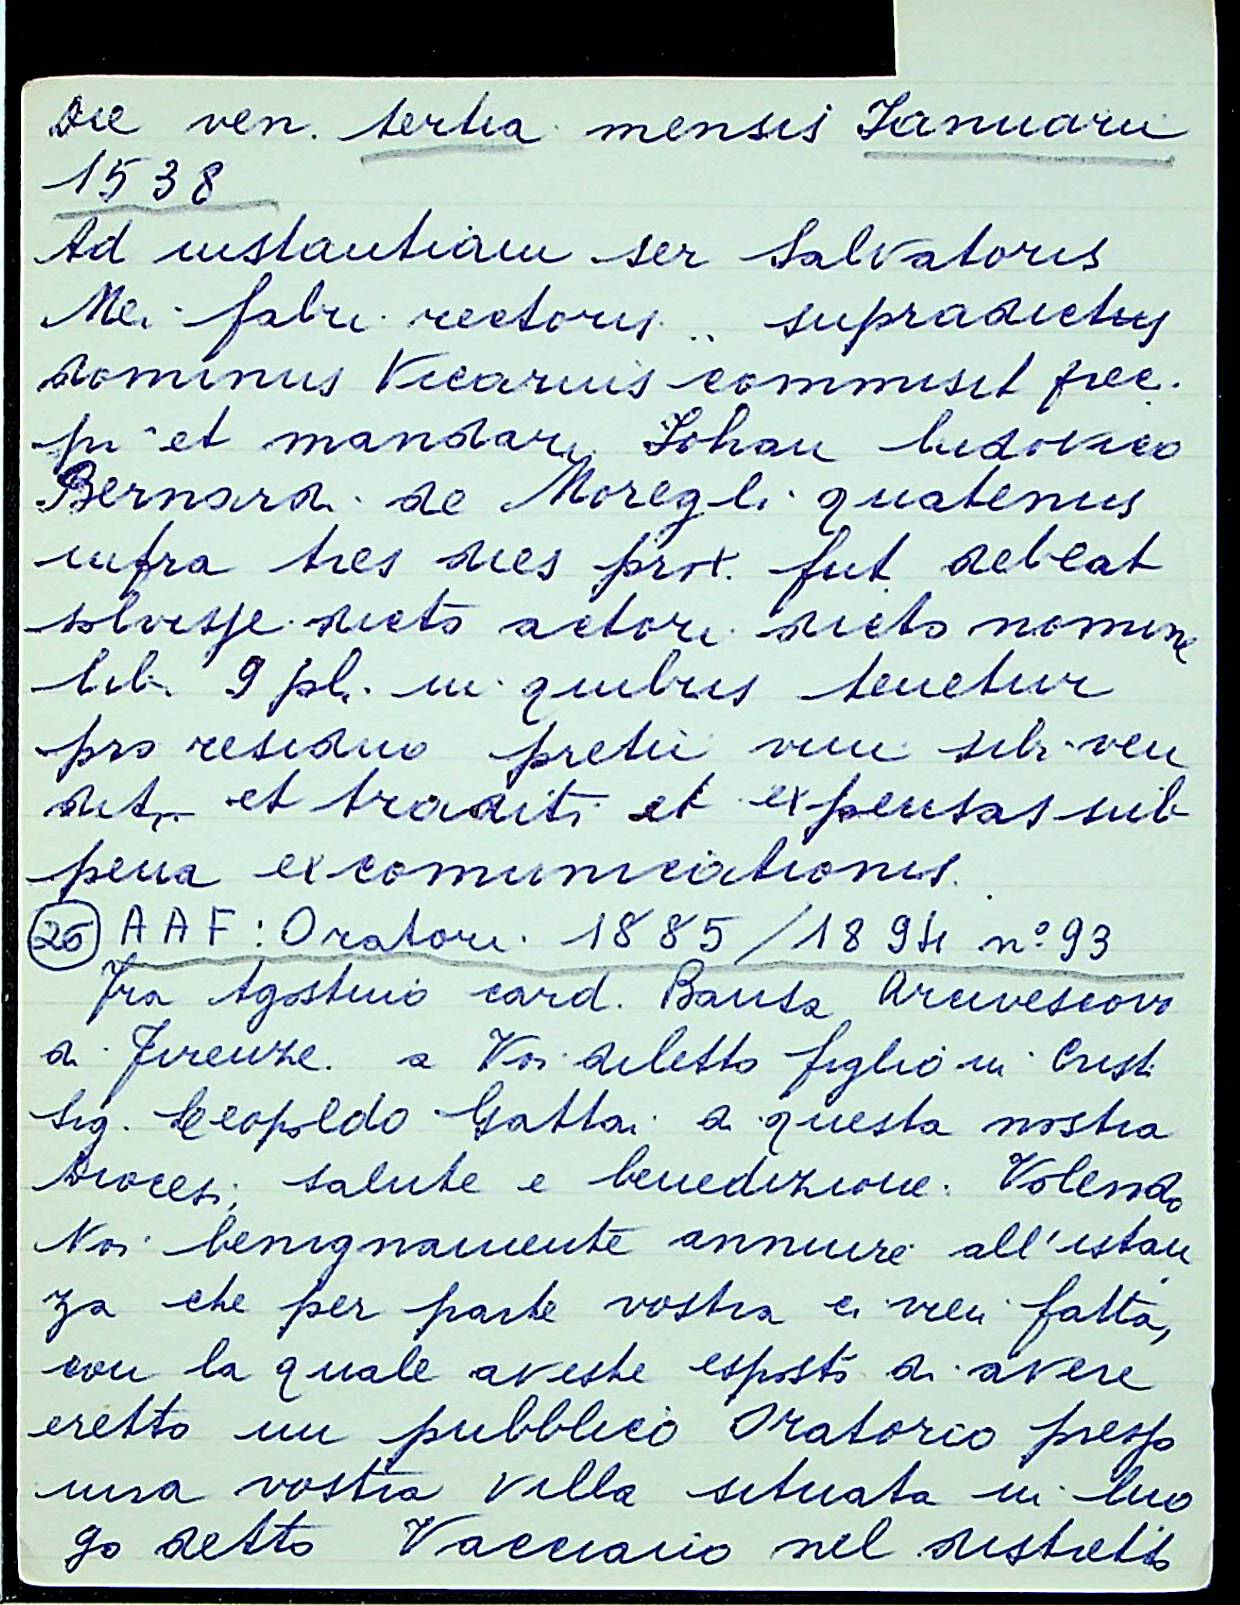 Die ven. tertia mensis Ianuarii
1538
Ad instantiam ser Salvatoris
Mei fabri rectoris .. supradictus
dominus Vicarius commisit prec.
pi et mandari Iohan Ludovico
Bernardi de Moregli quatenus
infra tres dies prox. fut debeat
solvisse dicto actori dicto nomine
lib. 9 pl. in quibus tenetur
pro residuo pretii vini sibi ven
diti et traditi et expensas sub
pena excomunicationis.
26 AAF: Oratori 1885/1894 n° 93
Fra Agostino card. Bausa Arcivescovo
di Firenze a Voi diletto figlio in Cristi
Sig. Leopoldo Gattai di questa nostra
Diocesi, salute e benedizione. Volendo
Noi benignamente annuire all'istan
za che per parte vostra ci vien fatta,
con la quale aveste esposto di avere
eretto un pubblico Oratorio presso
una vostra Villa situata in luo
go detto Vacciano nel distretto